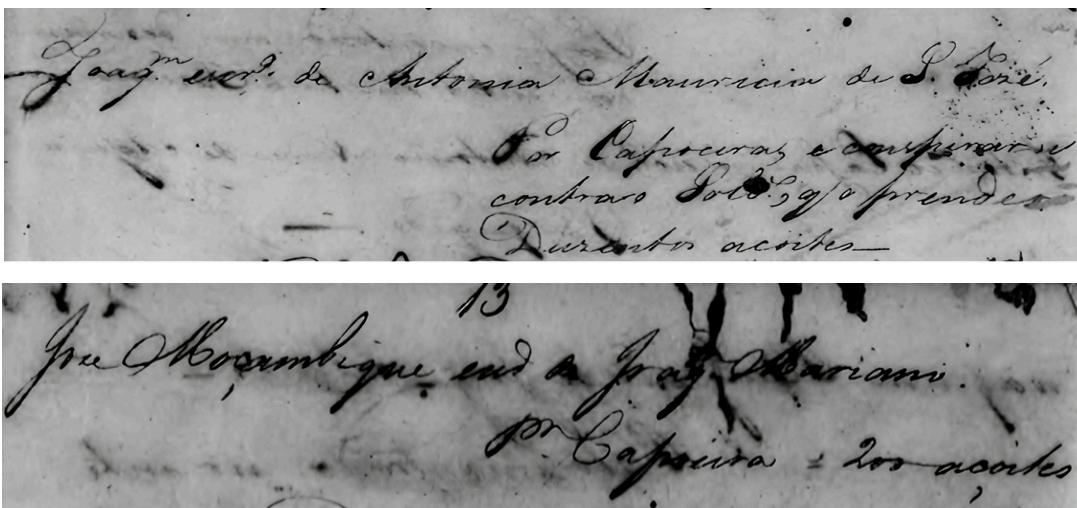 Joaqm escro de Antonia Mauricia de S. José.
Por Capoeira, e conspirar-se
contra o Soldo, q' o prendeo
Duzentos acoites
13
Jose Moçambique escro de Joaqm Mariano.
pr Capoeira = 200 açoites